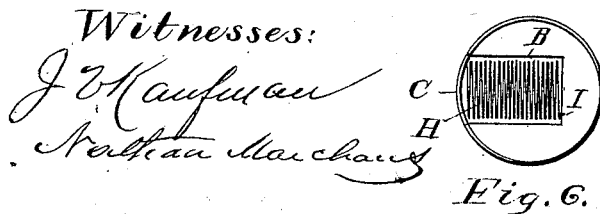 Witnesses:
J V Kaufman
Nathan Marchand
B
C
I
H
Fig. 6.